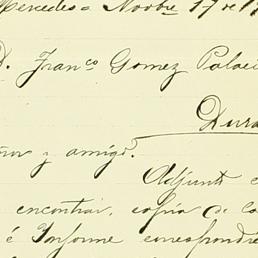 Mercedes Novbre 17 de 1
D. Franco Gomez Palac
Dura
ñor y amigo.
Adjunt
encontrar, copia de la
é Informe correspondie